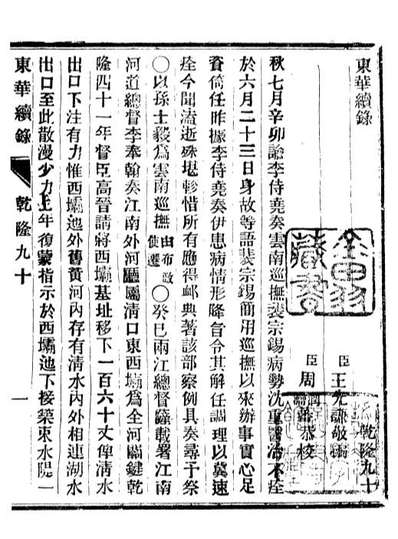 東華續錄
乾隆九十
臣王先謙敬編
臣周潤蕃恭校
秋七月辛卯諭李侍堯奏雲南巡撫裴宗錫病勢沈重醫治不痊
於六月二十三日身故等語裴宗錫簡用巡撫以來辦事實心足
資倚任昨據李侍堯奏伊患病情形降旨令其解任調理以冀速
痊今聞溘逝殊堪軫惜所有應得卹典著該部察例具奏尋予祭
○以孫士毅爲雲南巡撫由布政使遷○癸巳兩江總督薩載署江南
河道總督李奉翰奏江南外河廳屬清口東西壩爲全河關鍵乾
隆四十一年督臣高晉請將西壩基址移下一百六十丈俾清水
出口下注有力惟西壩迤外舊黃河內存有清水內外相連湖水
出口至此散漫少力上年復蒙指示於西壩迤下接築束水隄一
東華續錄
乾隆九十
一